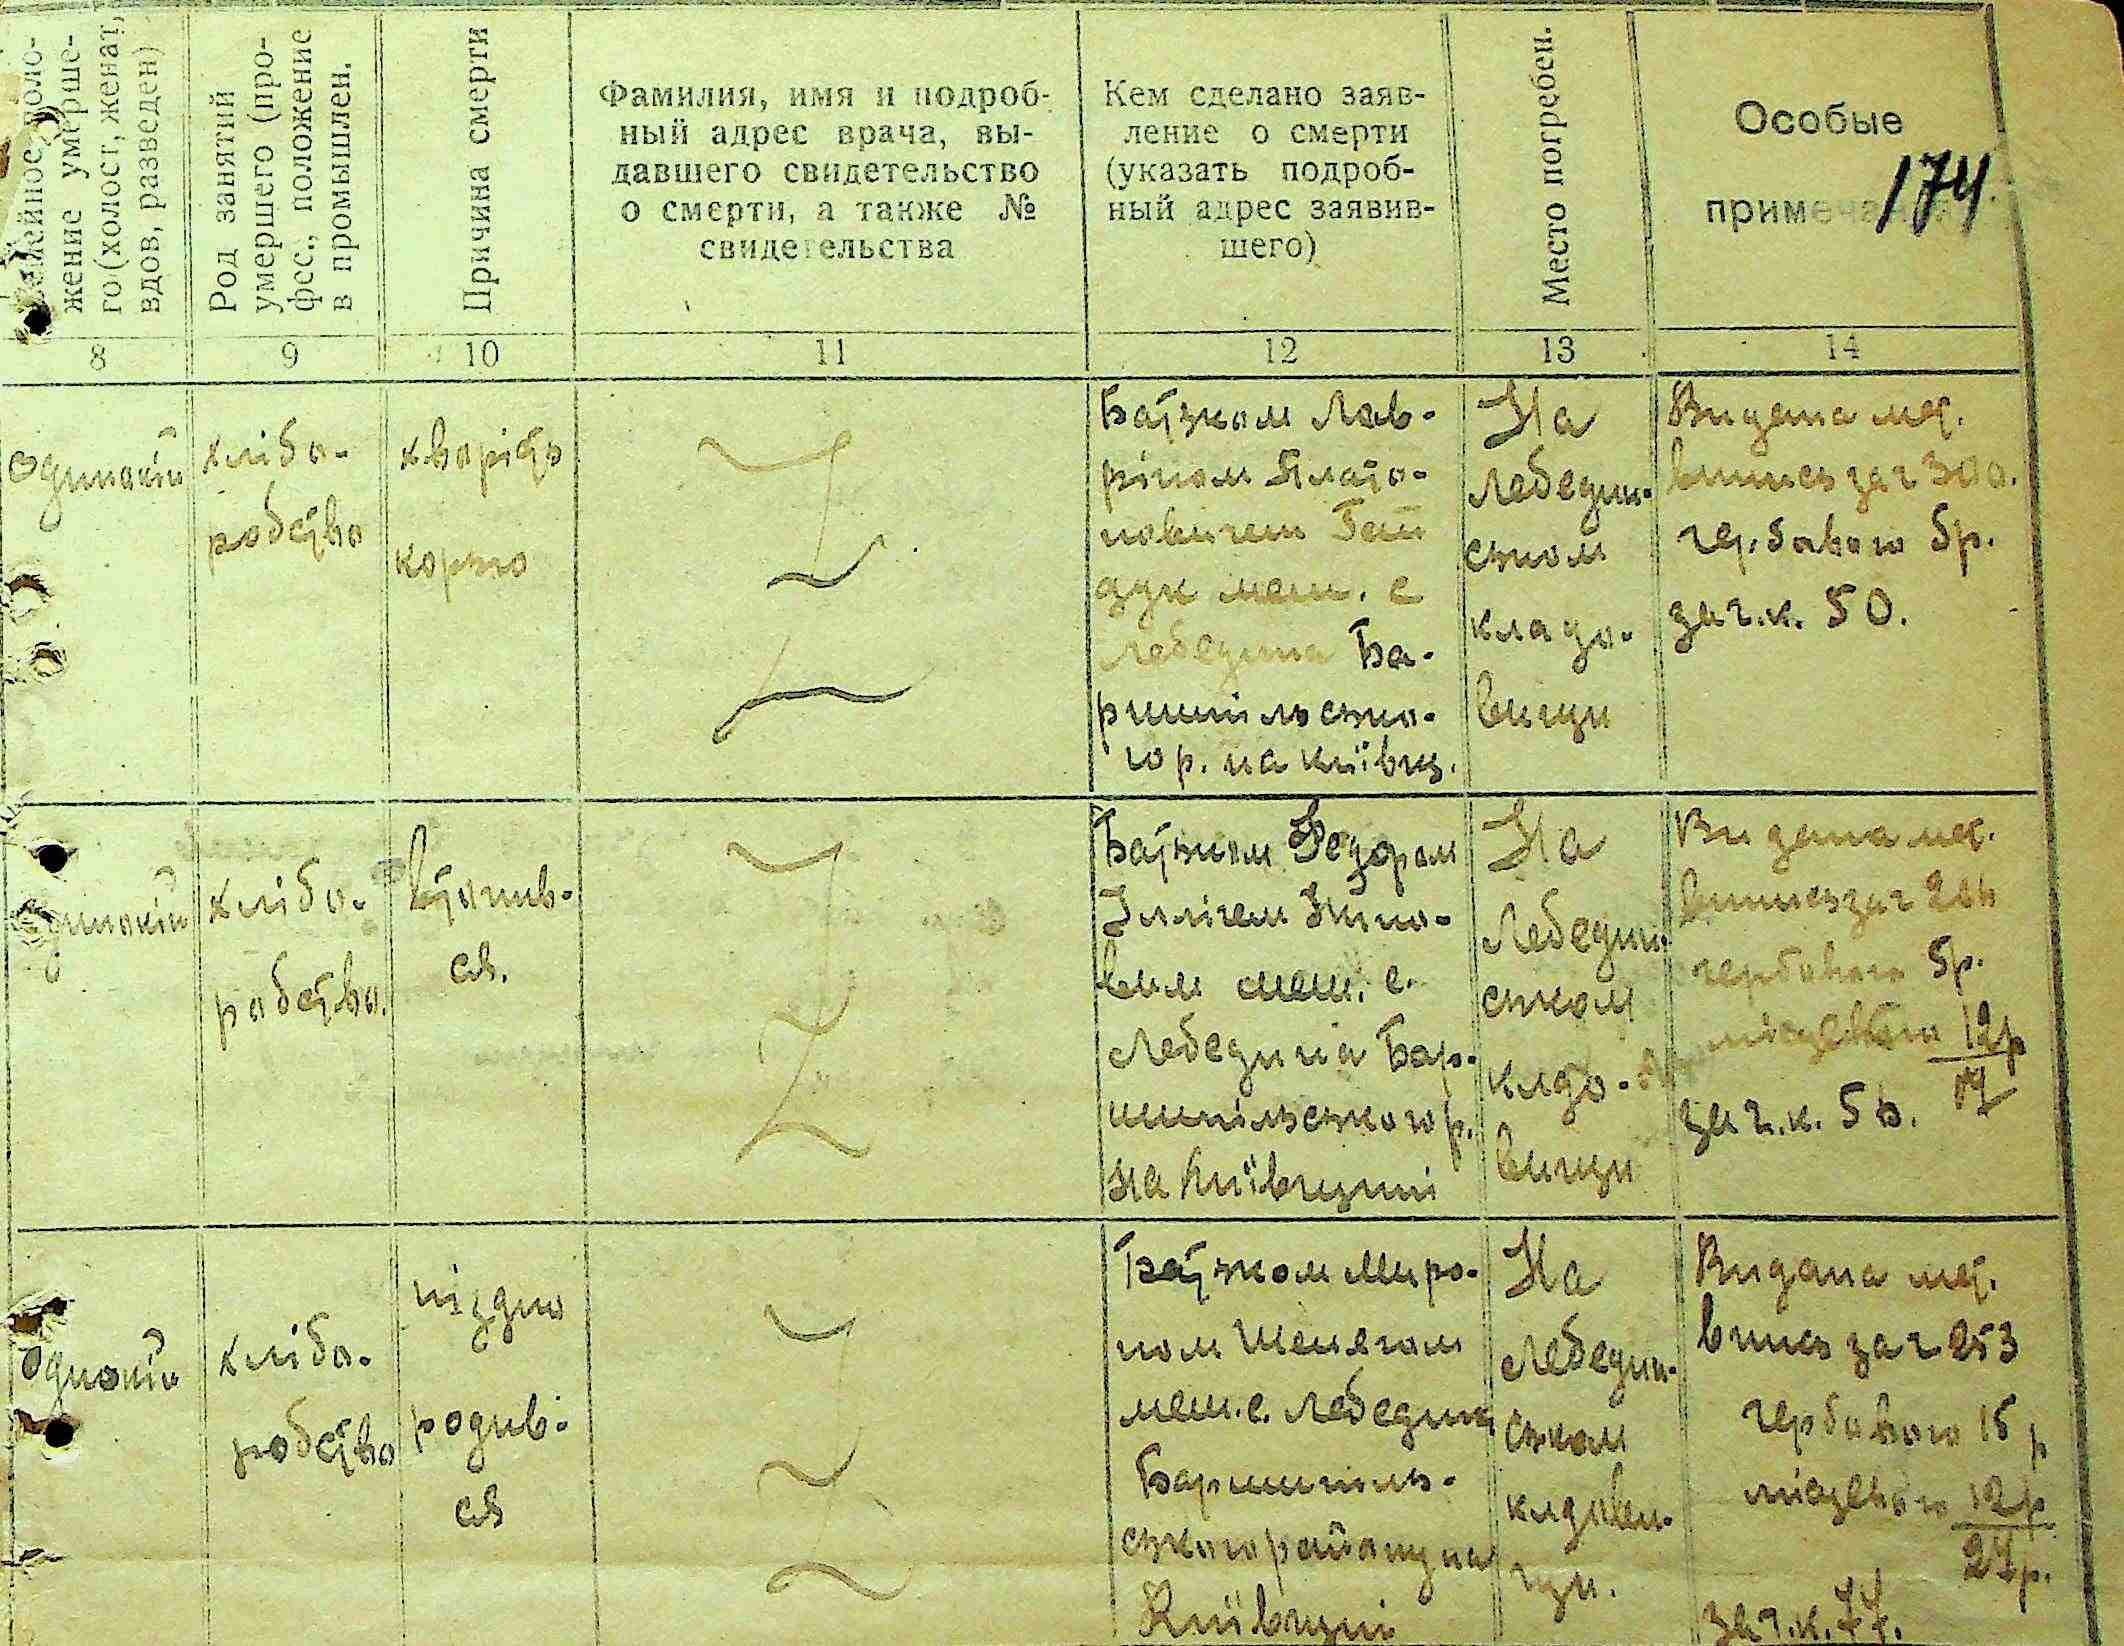 Семейное поло-
жение умерше-
го (холост, женат,
вдов, разведен)
Род занятий
умершего (про-
фес., положение
в промышлен.
Причина смерти
Фамилия, имя и подроб-
ный адрес врача, вы-
давшего свидетельство
о смерти, а также №
свидетельства
Кем сделано заяв-
ление о смерти
(указать подроб-
ный адрес заявив-
шего)
Место погребен.
Особые
примечания
174.
8 9 10 11 12 13 14
одинокій
хлібо-
робство
хворість
корью
Батьком Лав-
ріном Плато-
новичем Гай
дук меш. с
Лебедина Ба-
ришпільсько-
го р. на київщ.
На
Лебедин-
ском
кладо-
вищи
Видана мет.
впись за ч 300.
гербового 5р.
за ч. к. 50.
одинокій
хлібо-
робство.
втопив-
ся.
Батьком Федором
Іллічем
вим меш. с.
Лебедина Бар-
ишпільського р.
на Київщині
На
Лебедин-
ском
кладо-
вищи
Видана мет.
впись за ч
гербового 5р.
місцевого 12р
17
за ч. к.
одинокій
хлібо-
робство
піздно
родив-
ся
Батьком Миро-
ном Шенегом
меш. с. Лебедина
Баришпіль-
ського району на
Київщині
На
Лебедин-
ском
кладови-
щи.
Видана мет.
впись за ч 253
гербового 15 р
місцевого 12р
27р.
за ч. к. 77.